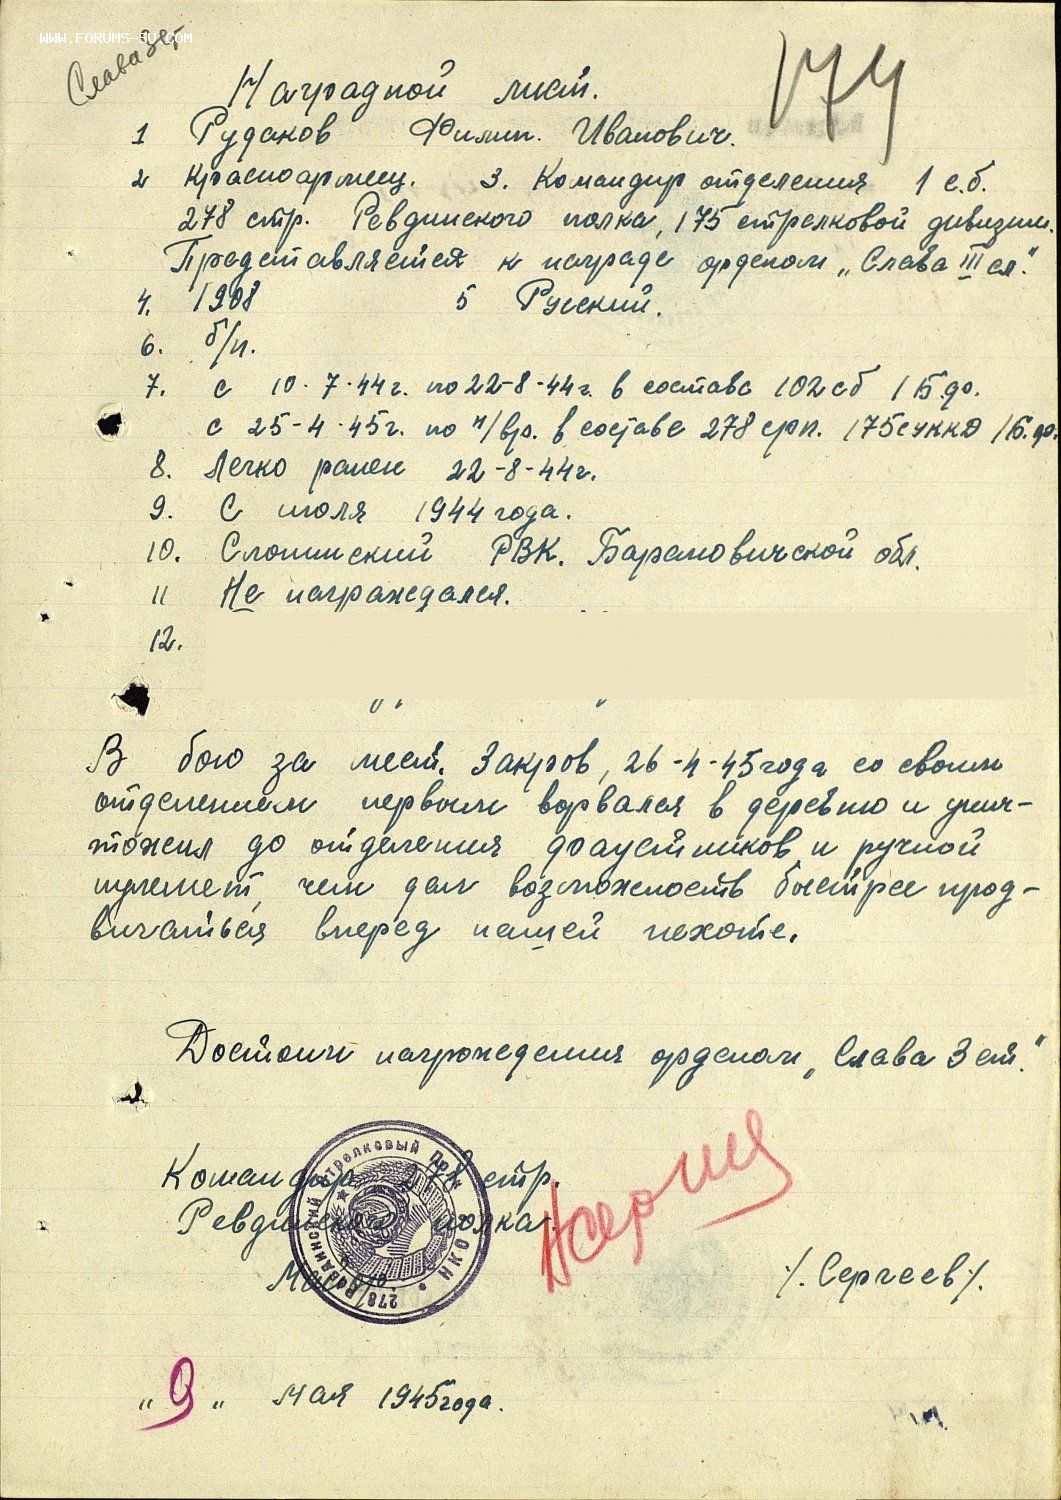 WWW.FORUMS-SU.COM
Слава 3ст
174
Наградной лист.
1 Рудаков Филип. Иванович.
2 Красноармеец. 3. Командир отделения 1 с.б.
278 стр. Ревдинского полка, 175 стрелковой дивизии.
Представляется к награде орденом „Слава III ст."
4. 1908 5 Русский.
6. б/п.
7. с 10.7.44г. по 22-8-44г. в составе 102 сб 1 Б.ф.
с 25-4-45г. по н/вр. в составе 278 срп. 175 суккд 1 Б.ф.
8. Легко ранен 22-8-44г.
9. С июля 1944 года.
10. Слонимский РВК. Барановичской обл.
11 Не награждался.
12.
В бою за мест. Закров, 26-4-45 года со своим
отделением первым ворвался в деревню и унич-
тожил до отделения фаустников и ручной
пулемет, чем дал возможность быстрее прод-
вигаться вперед нашей пехоте.
Достоин награждения орденом „Слава 3 ст."
Командир 278 стр.
Ревдинского полка.
278 Ревдинский стрелковый полк НКО
/. Сергеев /.
„9" мая 1945 года.